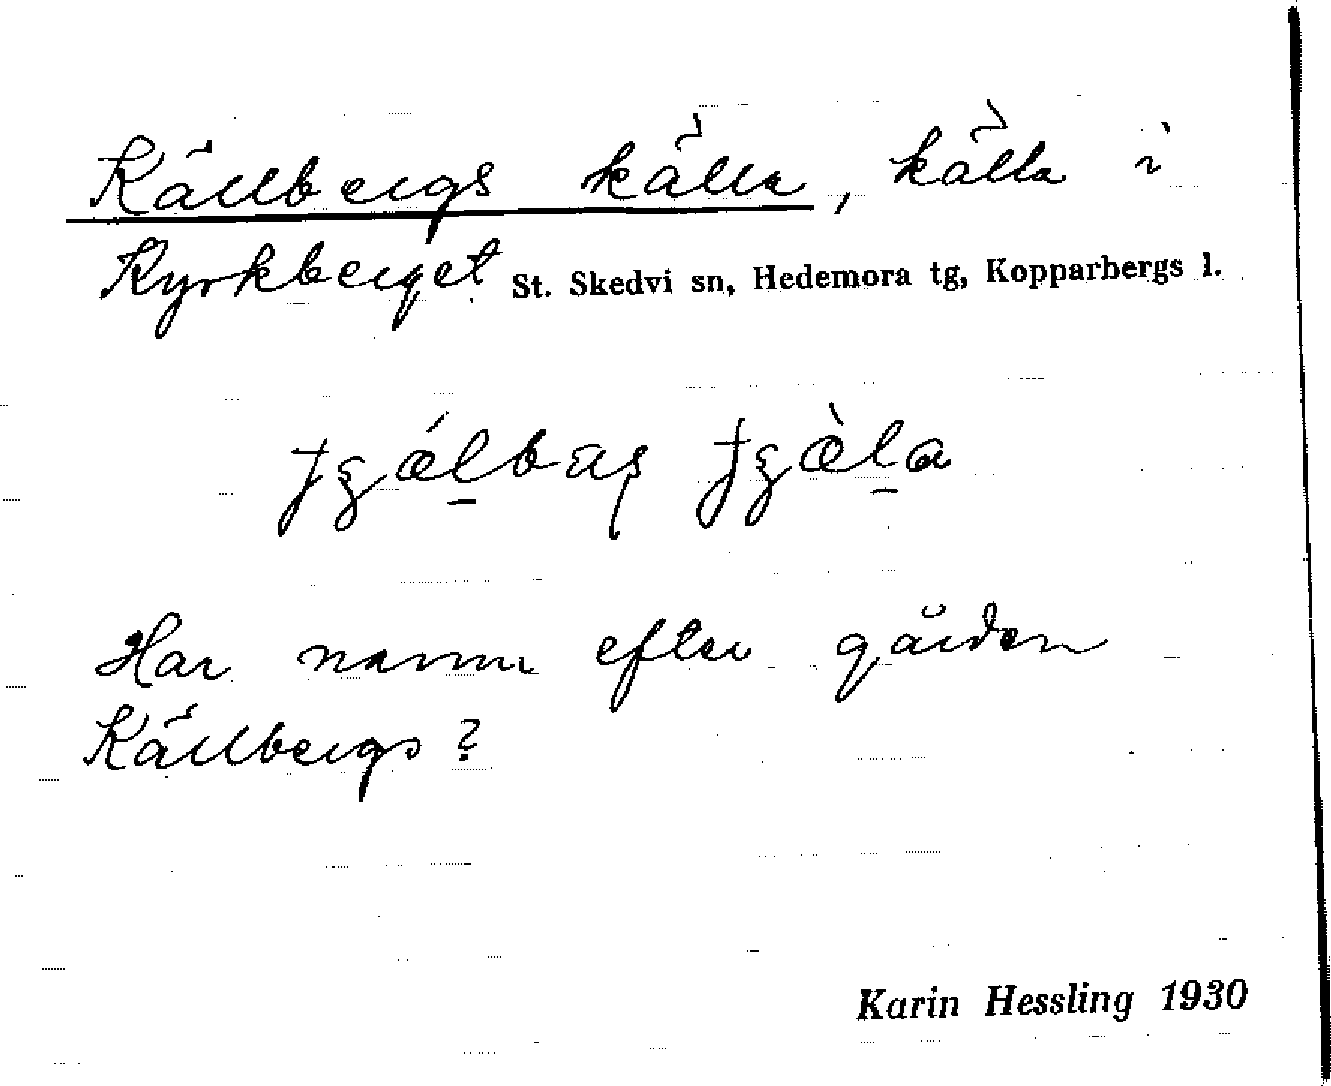 Källbergs källa, källa i
Kyrkberget St. Skedvi sn, Hedemora tg, Kopparbergs l.
Har namn efter gården
Källbergs?
Karin Hessling 1930